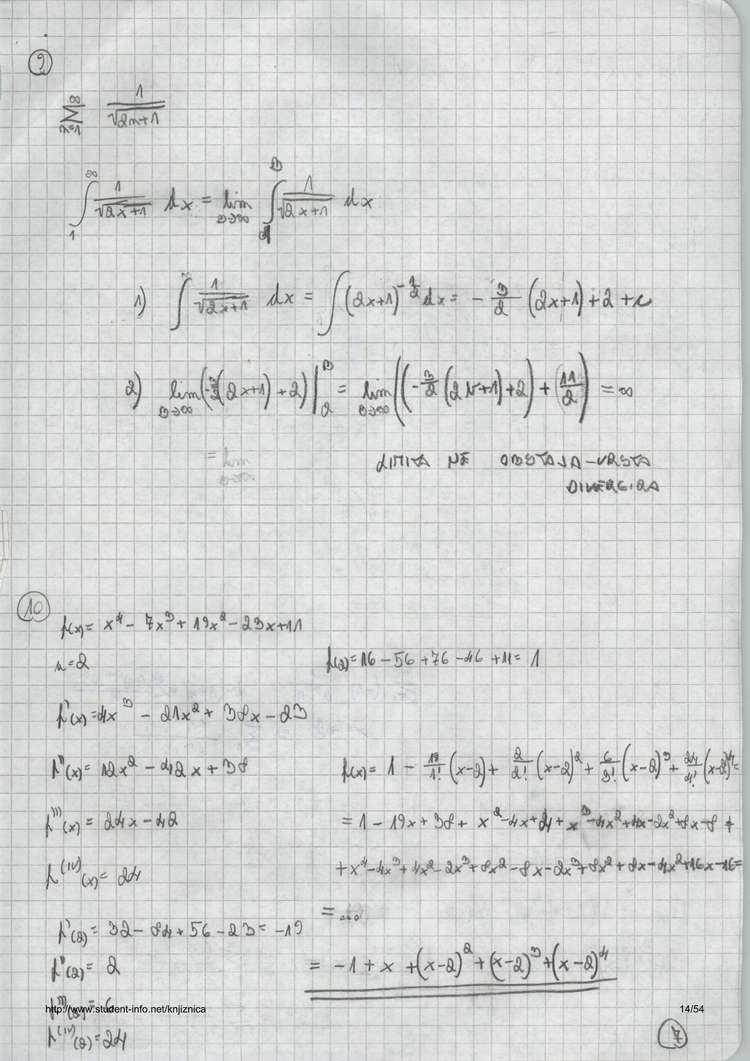 9
∞ Σ n=1 1/√(2n+1)
∫₁^∞ 1/√(2x+1) dx = lim B→∞ ∫ ^B 1/√(2x+1) dx
1) ∫ 1/√(2x+1) dx = ∫ (2x+1)^(-1/2) dx = - 3/2 (2x+1) + 2 + c
2) lim B→∞ (-3/2 (2x+1) + 2) |₂^B = lim B→∞ ((-3/2 (2b+1) + 2) + (11/2)) = ∞
= lim
LIMITA NE OBSTAJA - VRSTA
DIVERGIRA
10
f(x) = x⁴ - 7x³ + 19x² - 23x + 11
a = 2
f(2) = 16 - 56 + 76 - 46 + 11 = 1
f'(x) = 4x³ - 21x² + 38x - 23
f''(x) = 12x² - 42x + 38
f(x) = 1 - 19/1! (x-2) + 2/2! (x-2)² + 6/3! (x-2)³ + 24/4! (x-2)⁴ =
f'''(x) = 24x - 42
= 1 - 19x + 38 + x² - 4x + 4 + x³ - 4x² + 4x - 2x² + 8x - 8 +
f^(IV)(x) = 24
+ x⁴ - 4x³ + 4x² - 2x³ + 8x² - 8x - 2x³ + 8x² + 8x - 4x² + 16x - 16 =
f'(2) = 32 - 84 + 56 - 23 = -19
= ...
f''(2) = 2
= -1 + x + (x-2)² + (x-2)³ + (x-2)⁴
f'''(2) = 6
http://www.student-info.net/knjiznica
14/54
f^(IV)(2) = 24
7